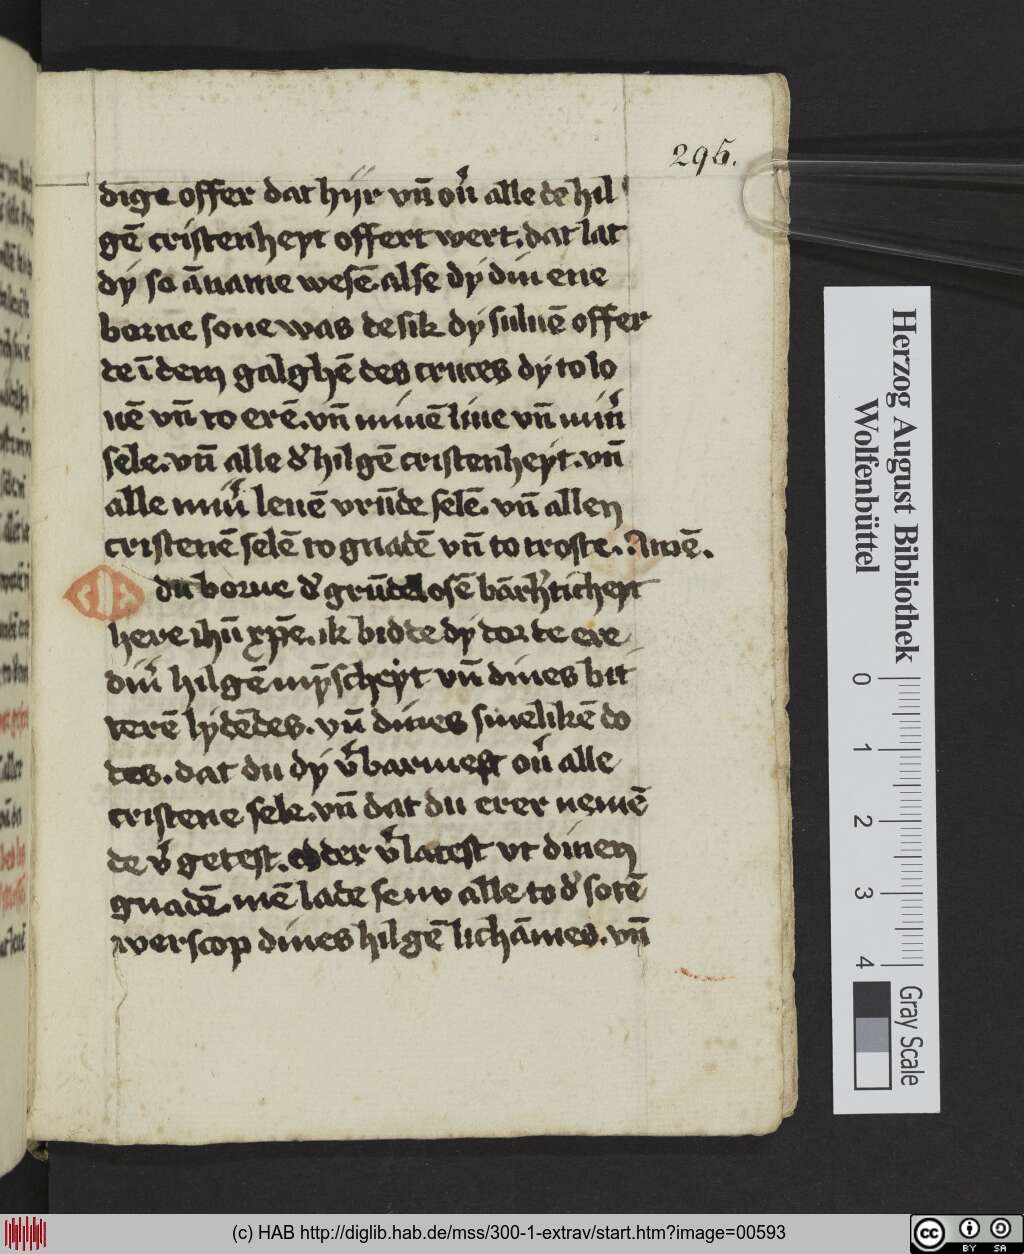 295.
dige offer dat hijr vn̄ ou̓ alle de hil
gē cristenheyt offert wert. dat lat
dy so ānamme wesē alse dy din ene
borne sone was de sik dy suluē offer
de ī dem galghē des cruces dy to lo
uē vn̄ to erē. vn̄ minē liue vn̄ min̓
sele. vn̄ alle d̓ hilgē cristenheyt. vn̄
alle min̓ leuē vrūde selē. vn̄ allen
cristenē selē to gnadē vn̄ to troste. Amē.
O du borne d̓ grūdelosē bārh̓ticheyt
here ihū xp̄e. ik bidde dy dor de ere
din̓ hilgē mīscheyt vn̄ dines bit
terē lydēdes. vn̄ dines sinelikē do
des. dat du dy v̓barmest ou̓ alle
cristene sele. vn̄ dat du erer nemē
de v̓getest. edder v̓latest vt dinen
gnadē. mē lade se nv alle to d̓ sotē
werscop dines hilgē lichāmes. vn̄
Herzog August Bibliothek
Wolfenbüttel
0 1 2 3 4
Gray Scale
(c) HAB http://diglib.hab.de/mss/300-1-extrav/start.htm?image=00593
cc BY SA